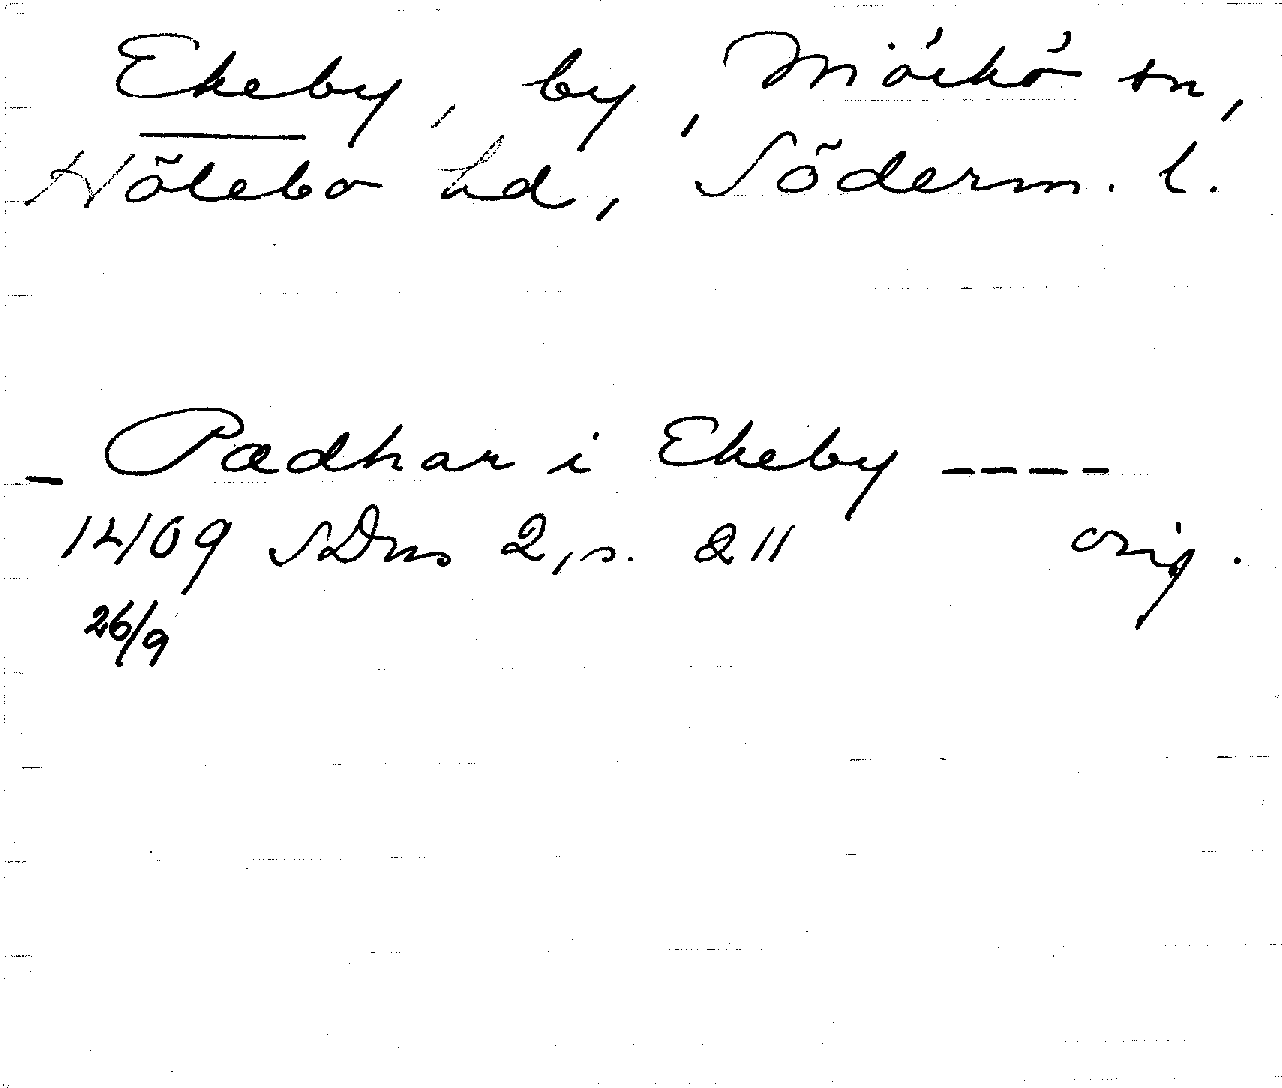 Ekeby, by, Mörkö sn,
Hölebo hd, Söderm. l.
- Padhar i Ekeby ----
1409 SDns 2, s. 211 orig.
26/9